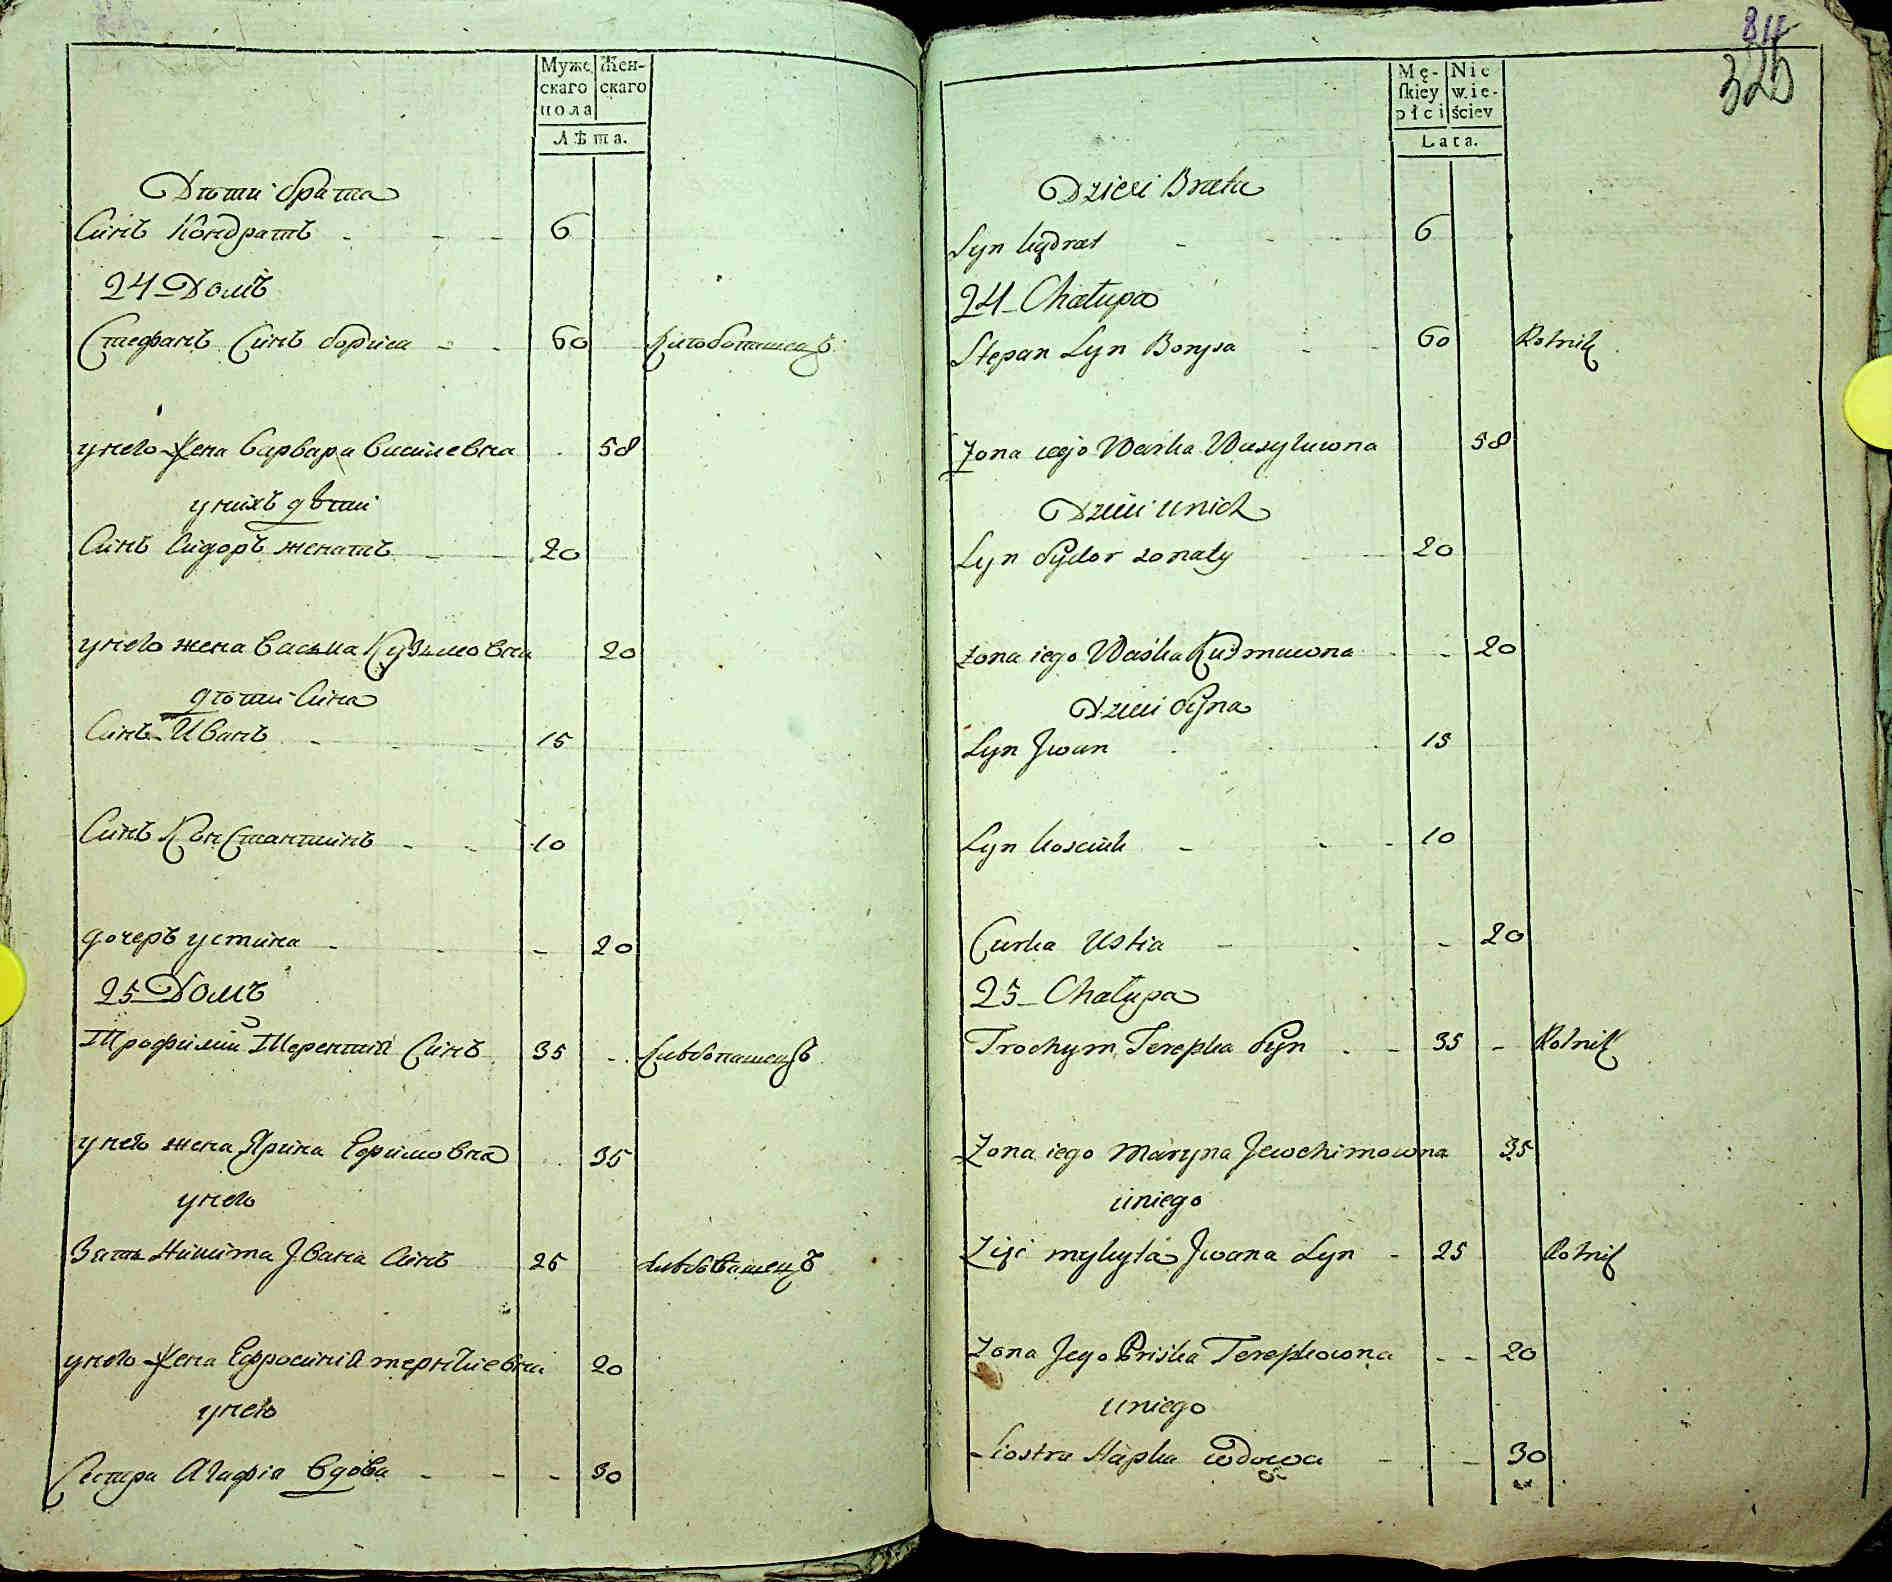 Муже Жен-
скаго скаго
пола
Лѣта.
Дѣти брата
Синъ Кондратъ 6
24 Домъ
Стефанъ Синъ бориса 60 хлѣбопашецъ
унего Жена варвара василевна 58
унихъ дѣти
Синъ Сидоръ женатъ 20
унего жена васька Кузьмовна 20
дѣти Сина
Синъ Иванъ 15
Синъ Константинъ 10
дочеръ устина 20
25 Домъ
Трофимій Терентій Синъ 35 хлѣбопашецъ
унего жена Ярина Ефимовна 35
унего
Зять Никита Івана Синъ 25 хлѣбопашецъ
унего Жена Ефросиній 20
унего
Сестра Агафіа вдова 30
811
325
Mę- Nie
skiey wie-
płci ściey
Lata.
Dzieci Brata
Syn kądrat 6
24 Chałupa
Stepan Syn Borysa 60 Rolnik
Zona iego Warka Wasyluwna 58
Dzieci unich
Syn Sydor zonaty 20
zona iego Waśka Kuzmuwna 20
Dzieci Syna
Syn Jwan 15
Syn kosciuk 10
Curka Ustia 20
25 Chałupa
Trochym Terepka Syn 35 Rolnik
Zona iego Maryna Jewchimowna 35
uniego
Zięć mykyta Jwana Syn 25 Rolnik
Zona Jego Priska Terepkowna 20
uniego
Siostra Hapka wdowa 30